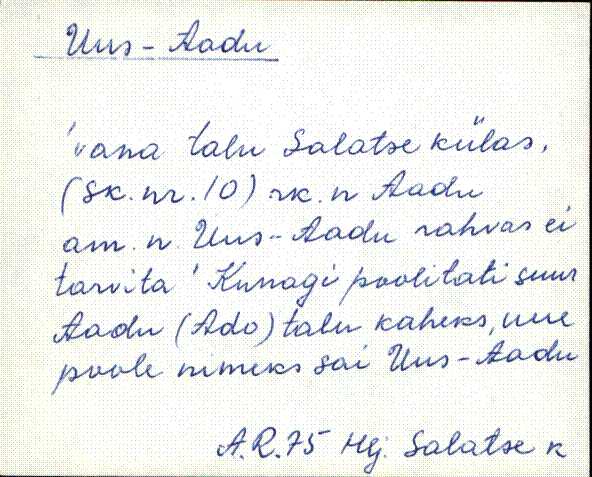 Uus-Aadu
'vana talu Salatse külas,
(Sk. nr. 10) rk. n Aadu
am. n. Uus-Aadu rahvas ei
tarvita' Kunagi poolitati suur
Aadu (Ado) talu kaheks, uue
poole nimeks sai Uus-Aadu
A.R. 75 Hlj. Salatse k